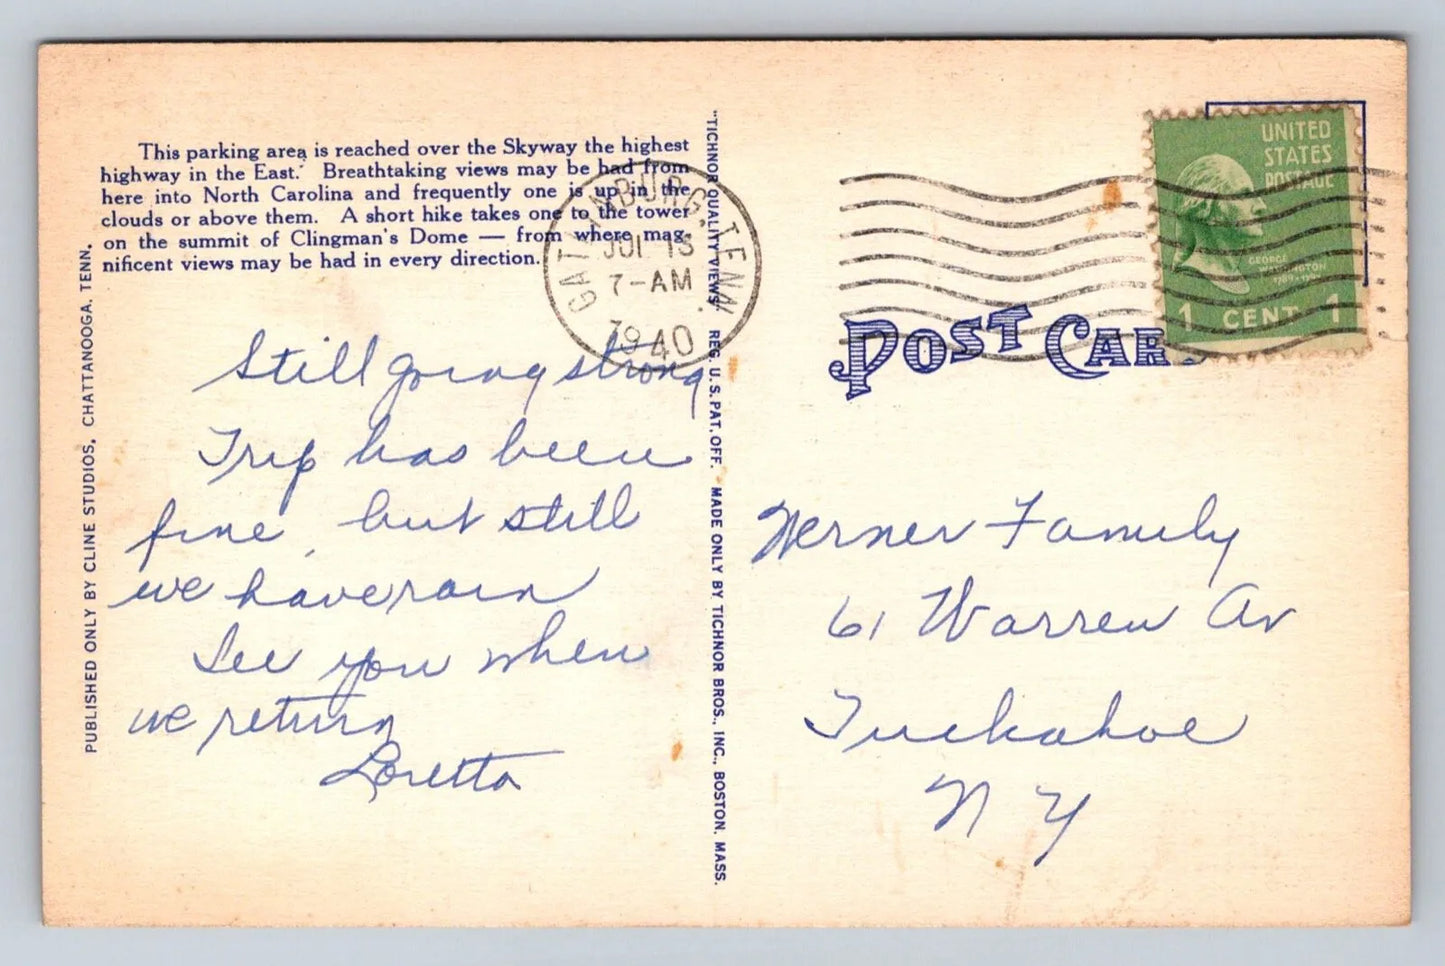 This parking area is reached over the Skyway the highest
highway in the East. Breathtaking views may be had from
here into North Carolina and frequently one is up in the
clouds or above them. A short hike takes one to the tower
on the summit of Clingman's Dome — from where mag-
nificent views may be had in every direction.
PUBLISHED ONLY BY CLINE STUDIOS, CHATTANOOGA, TENN.
GATLINBURG, TENN.
JUL 13
7-AM
1940
Still going strong
Trip has been
fine, but still
we have rain
See you when
we return
Loretta
"TICHNOR QUALITY VIEWS" REG. U. S. PAT. OFF. MADE ONLY BY TICHNOR BROS., INC., BOSTON, MASS.
UNITED
STATES
POSTAGE
GEORGE
WASHINGTON
1 CENT 1
POST CARD
Werner Family
61 Warren Av
Tuckahoe
N Y